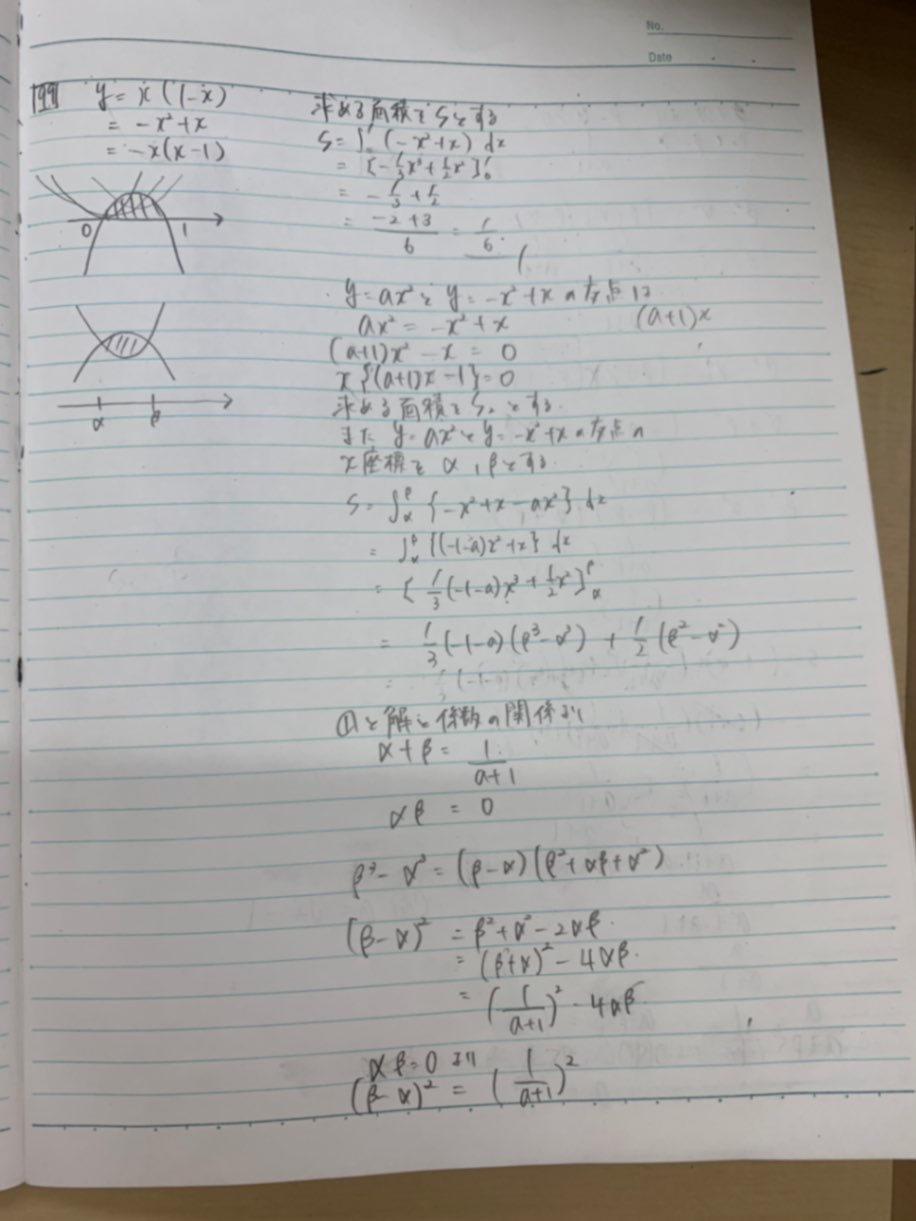 No.
Date
199 y = x(1-x)
= -x²+x
= -x(x-1)
0 1
α β
求める面積をSとする
S = ∫₀¹ (-x²+x) dx
= [-1/3x³+1/2x²]₀¹
= -1/3+1/2
= (-2+3)/6 = 1/6
y=ax²と y=-x²+xの交点は
ax² = -x²+x (a+1)x
(a+1)x² - x = 0
x{(a+1)x-1}=0
求める面積をS。とする.
また y=ax²とy=-x²+xの交点の
x座標を α,βとする
S = ∫α^β {-x²+x-ax²} dx
= ∫α^β {(-1-a)x²+x} dx
= [1/3(-1-a)x³+1/2x²]α^β
= 1/3(-1-a)(β³-α³) + 1/2(β²-α²)
①と解と係数の関係より
α+β = 1/(a+1)
αβ = 0
β³-α³ = (β-α)(β²+αβ+α²)
(β-α)² = β²+α²-2αβ.
= (β+α)²-4αβ.
= (1/(a+1))²-4αβ
αβ=0 より
(β-α)² = (1/(a+1))²